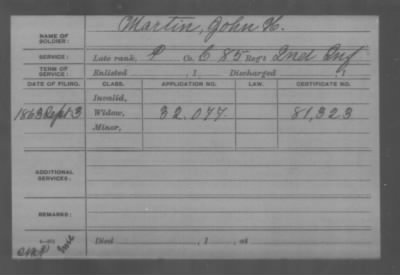 NAME OF SOLDIER: Martin, John H.
SERVICE: Late rank, P Co. C 85 Reg't 2nd Inf
TERM OF SERVICE: Enlisted , 1 Discharged , 1
DATE OF FILING. CLASS. APPLICATION NO. LAW. CERTIFICATE NO.
Invalid,
1863 Sept 3 Widow, 32.077 81,323
Minor,
ADDITIONAL SERVICES:
REMARKS:
Died , 1 , at